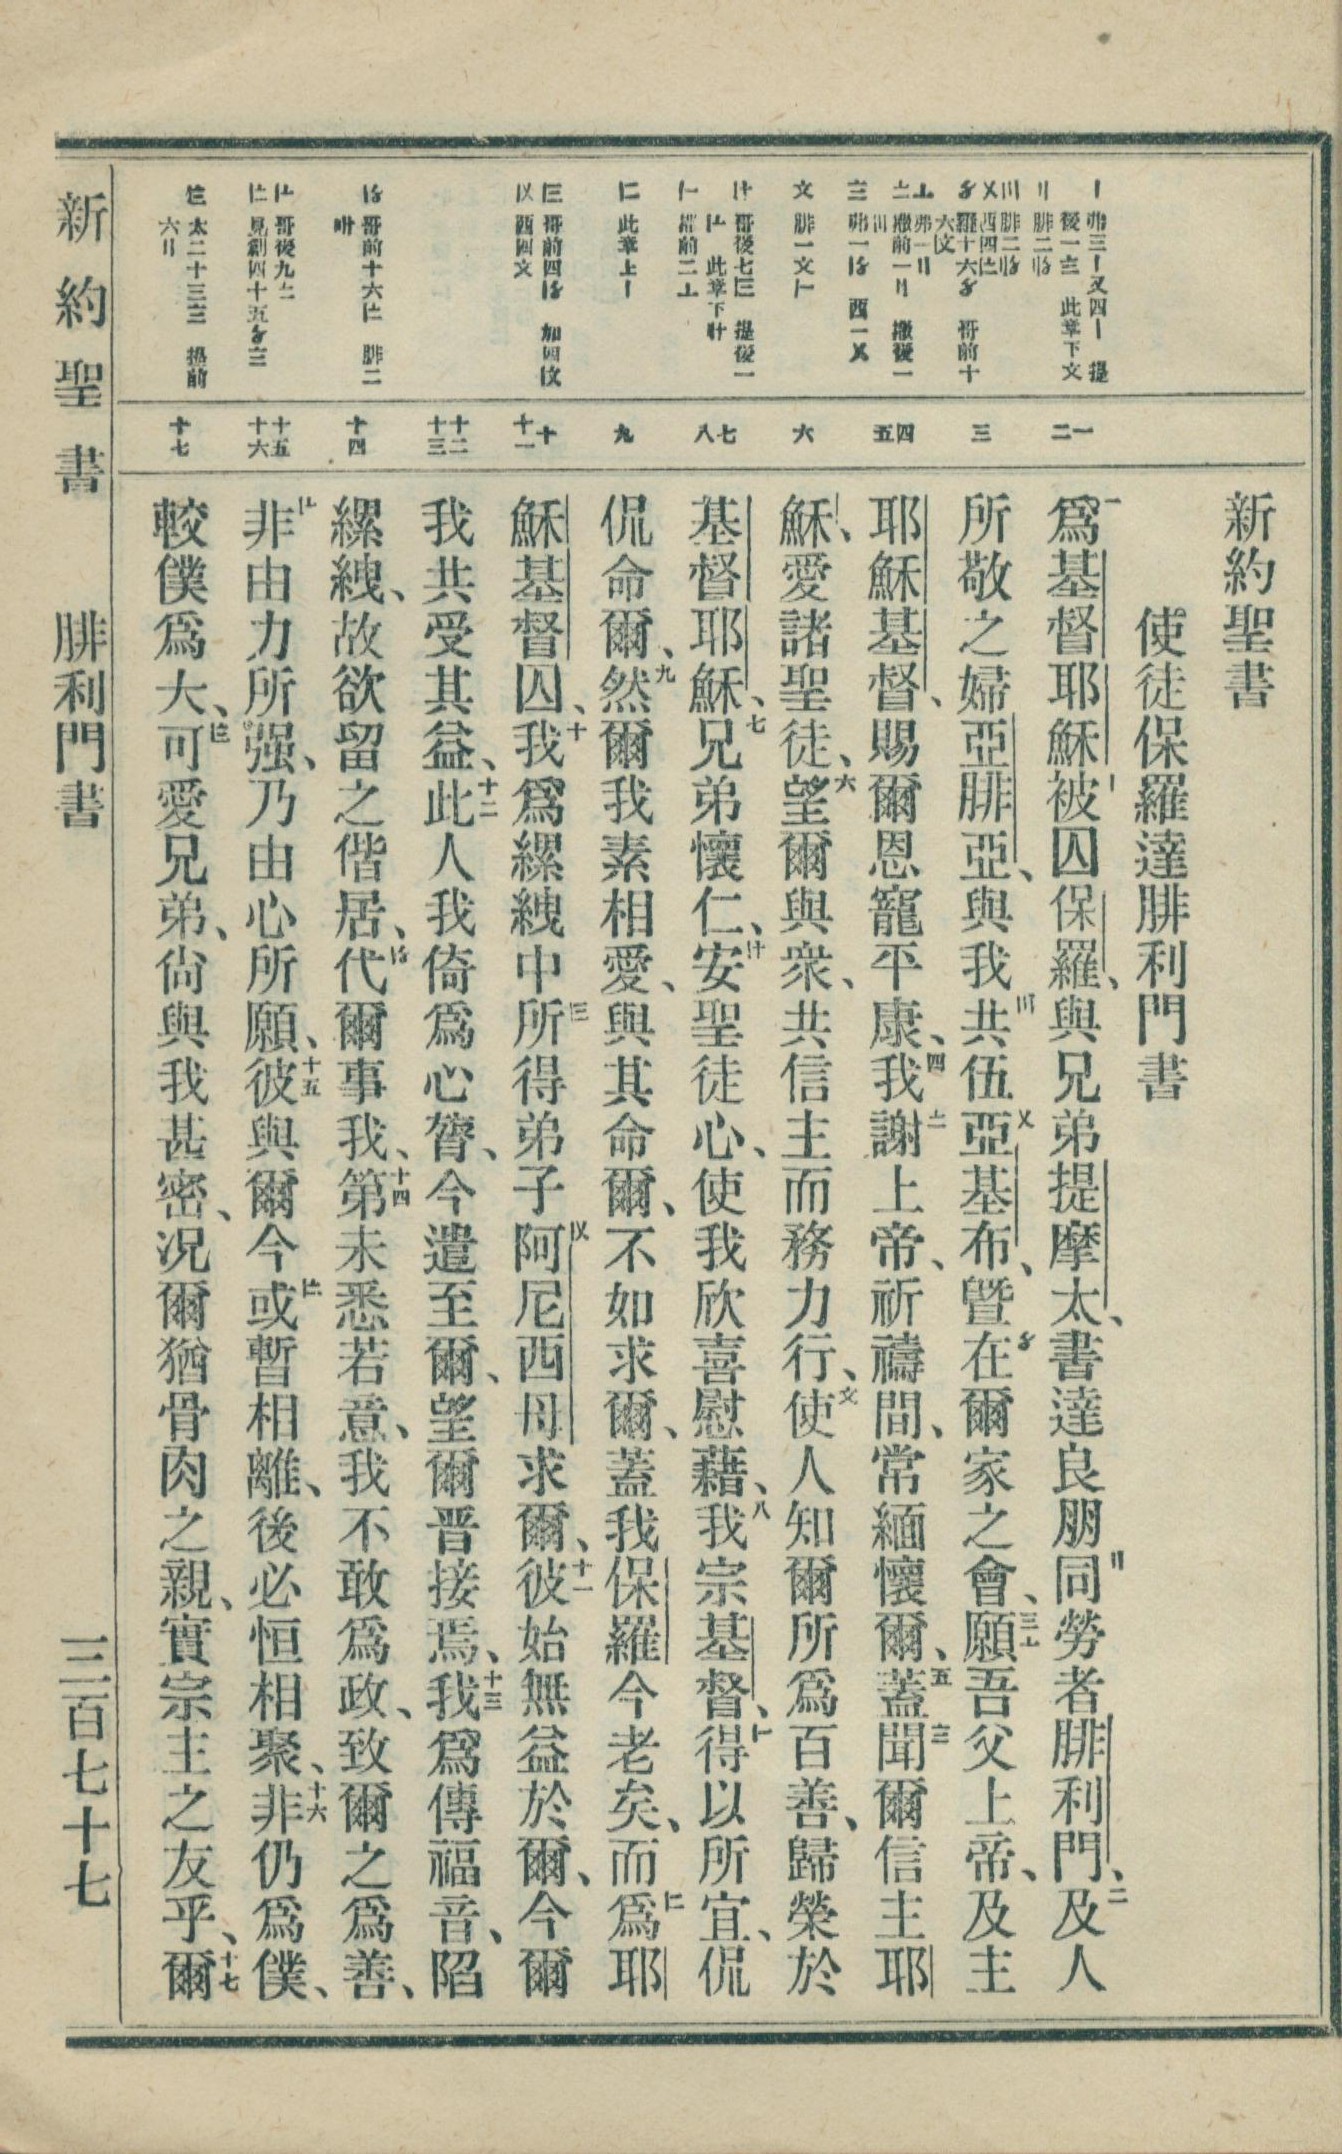 新約聖書
使徒保羅達腓利門書
一爲基督耶穌被囚保羅、與兄弟提摩太、書達良朋同勞者腓利門、二及人
所敬之婦亞腓亞、與我共伍亞基布、曁在爾家之會、三願吾父上帝、及主
耶穌基督、賜爾恩寵平康、四我謝上帝、祈禱間、常緬懷爾、五蓋聞爾信主耶
穌、愛諸聖徒、六望爾與衆、共信主而務力行、使人知爾所爲百善、歸榮於
基督耶穌、七兄弟懷仁、安聖徒心、使我欣喜慰藉、八我宗基督、得以所宜、侃
侃命爾、九然爾我素相愛、與其命爾、不如求爾、蓋我保羅今老矣、而爲耶
穌基督囚、十我爲縲絏中所得弟子阿尼西母求爾、十一彼始無益於爾、今爾
我共受其益、十二此人我倚爲心膂、今遣至爾、望爾晋接焉、十三我爲傳福音、陷
縲絏、故欲留之偕居、代爾事我、十四第未悉若意、我不敢爲政、致爾之爲善、
非由力所强、乃由心所願、十五彼與爾今或暫相離、後必恒相聚、十六非仍爲僕、
較僕爲大、可愛兄弟、尙與我甚密、况爾猶骨肉之親、實宗主之友乎、十七爾
一二
三
四五
六
七八
九
十十一
十二十三
十四
十五十六
十七
新約聖書
腓利門書
三百七十七